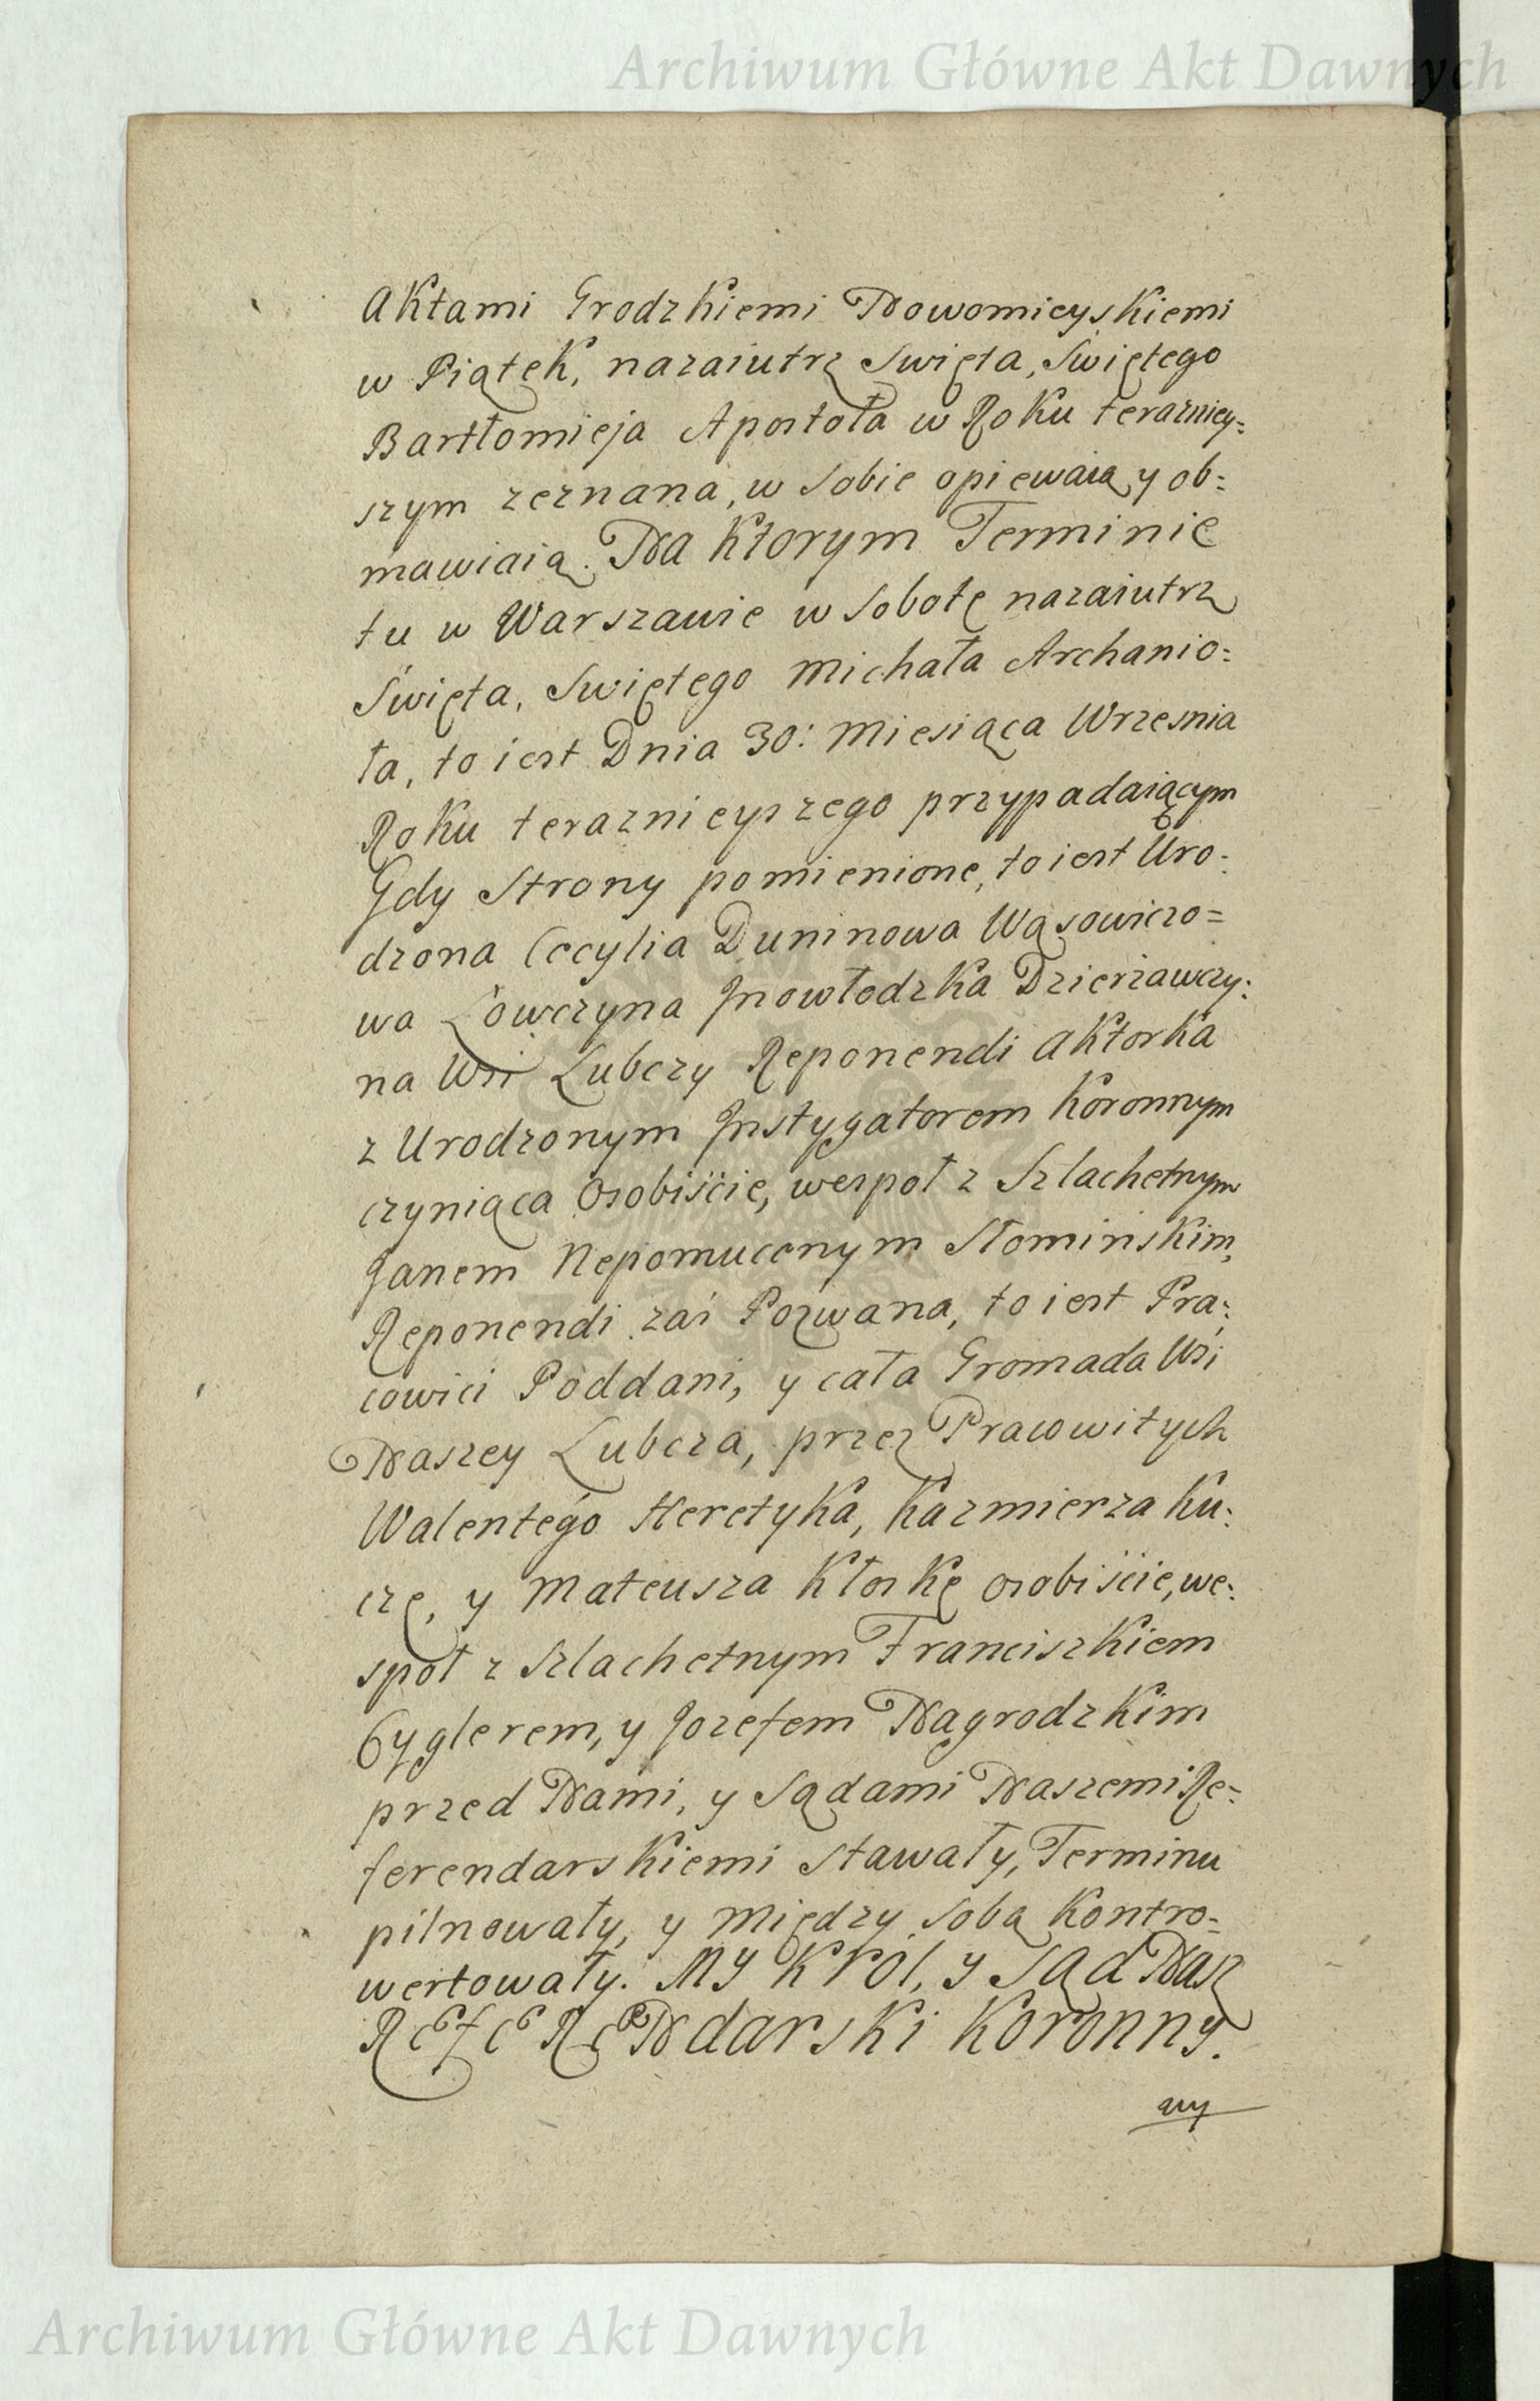 Archiwum Główne Akt Dawnych
Aktami Grodzkiemi Nowomieyskiemi
w Piątek, nazaiutrz Swięta, Swiętego
Bartłomieja Apostoła w Roku terazniey=
szym zeznana, w sobie opiewaią y ob=
mawiaią. Na ktorym Terminie
tu w Warszawie w Sobotę nazaiutrz
Święta, Swiętego Michała Archanio=
ła, to iest Dnia 30: Miesiąca Wrzesnia
Roku teraznieyszego przypadaiącym
Gdy Strony pomienione, to iest Uro=
dzona Cecylia Duninowa Wąsowiczo=
wa Łowczyna Jnowłodzka Dzierżawczy=
na Wsi Lubczy Reponendi Aktorka
z Urodzonym Jnstygatorem Koronnym
czyniąca osobiście, wespoł z Szlachetnym
Janem Nepomucenym Słomińskim,
Reponendi zaś Pozwana, to iest Pra=
cowici Poddani, y cała Gromada Wsi
Naszey Lubcza, przez Pracowitych
Walentego Heretyka, Kazmierza Ku=
czę, y Mateusza Kłoskę osobiście, we=
społ z Szlachetnym Franciszkiem
Cyglerem, y Jozefem Nagrodzkim
przed Nami, y Sądami Naszemi Re=
ferendarskiemi stawały, Terminu
pilnowały, y między sobą kontro=
wertowały. MY KROl, y SĄd Nasz
RefeReNdarski Koronny.
Archiwum Główne Akt Dawnych